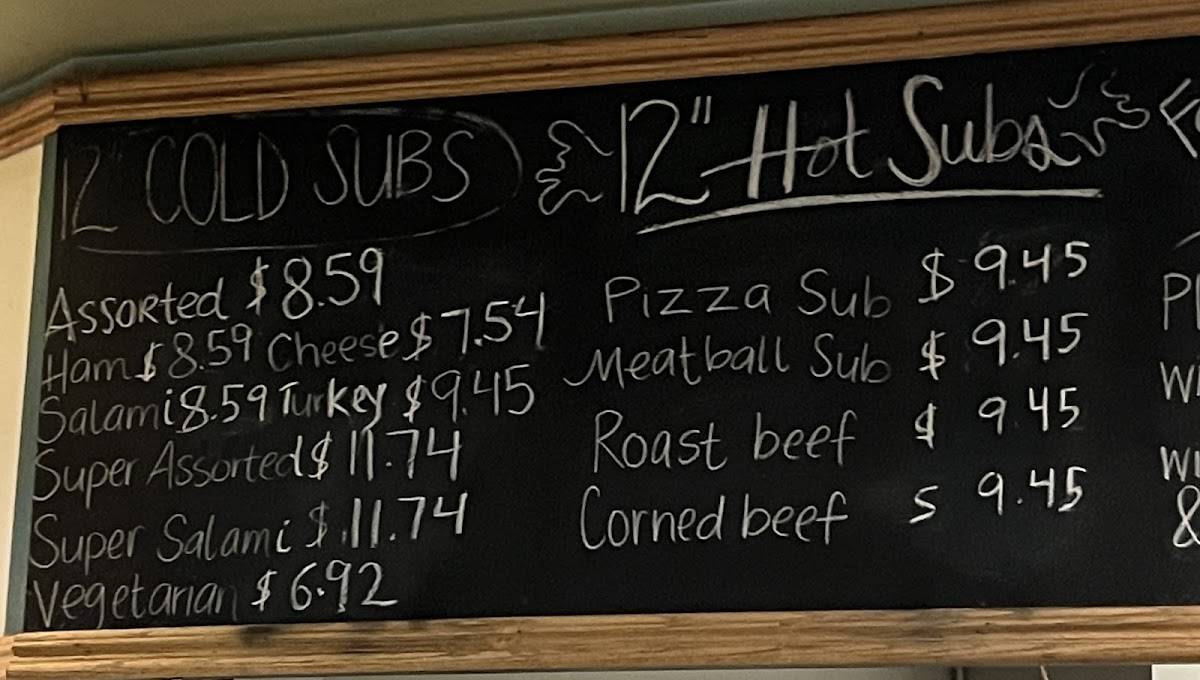 12" COLD SUBS
Assorted $8.59
Ham $8.59 Cheese $7.54
Salami 8.59 Turkey $9.45
Super Assorted $11.74
Super Salami $.11.74
Vegetarian $6.92
12" Hot Subs
Pizza Sub $ 9.45
Meatball Sub $ 9.45
Roast beef $ 9.45
Corned beef $ 9.45
&